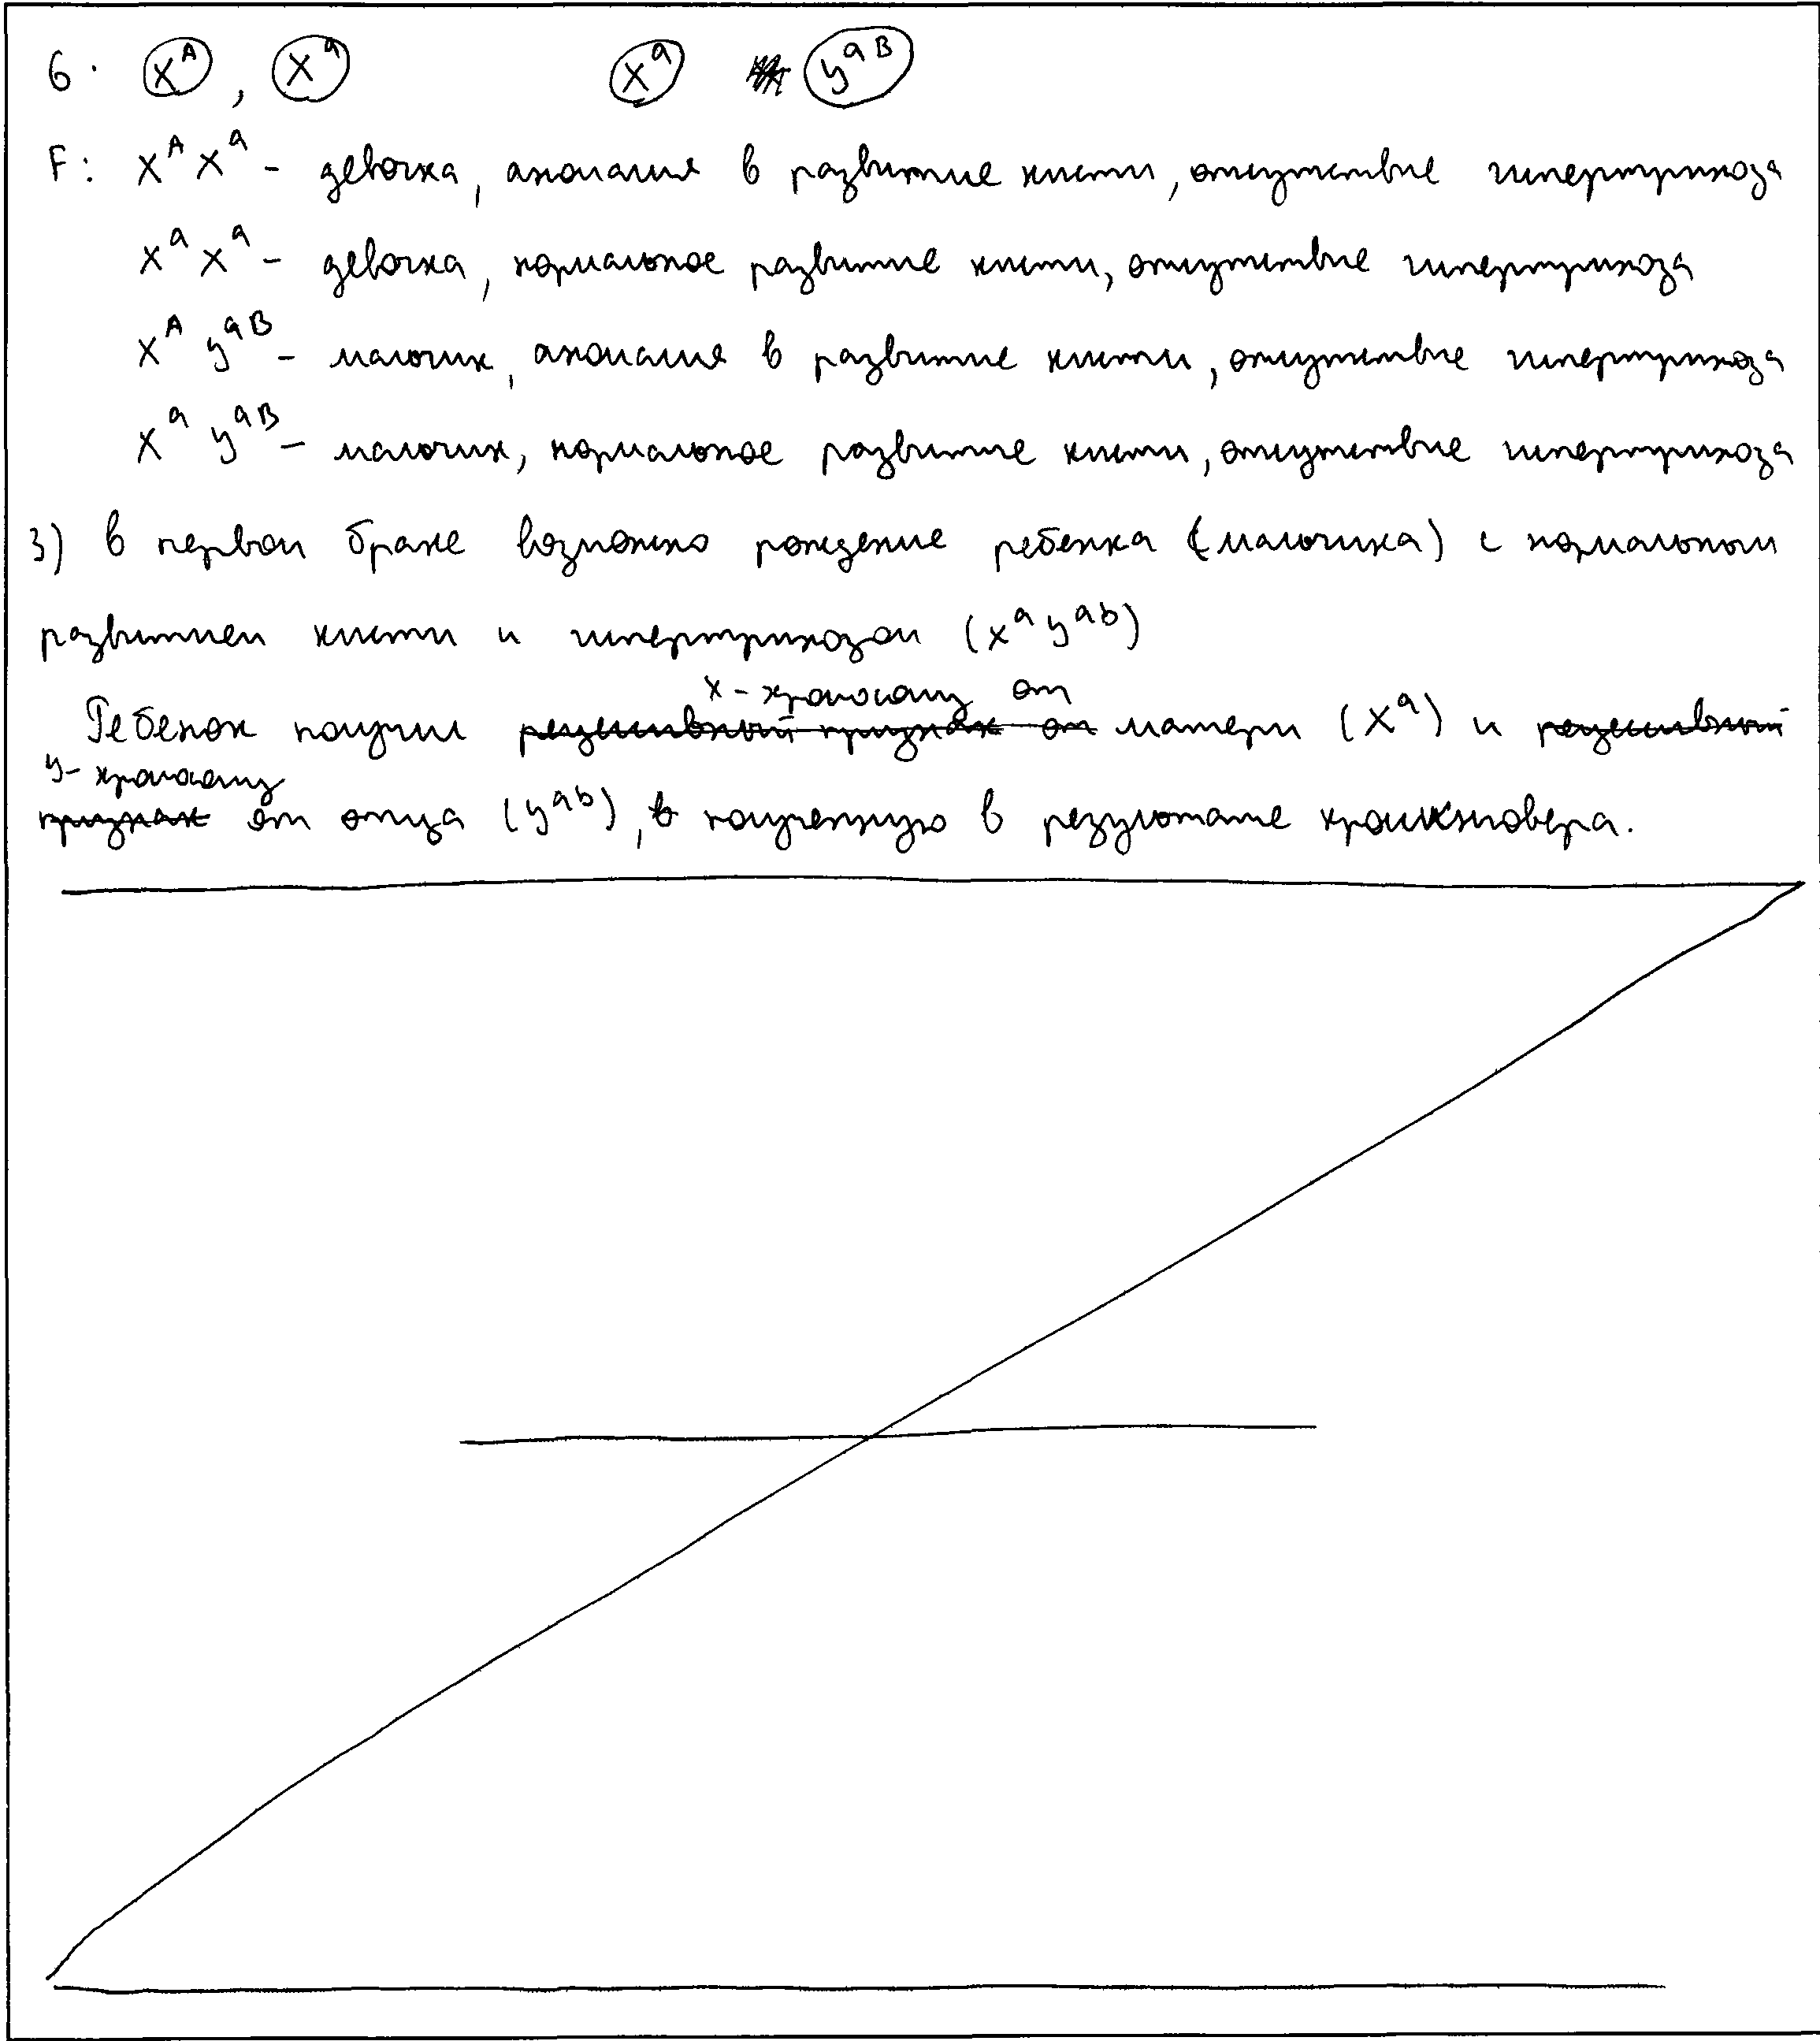 G. X^A, X^a X^a y^aB
F: X^A X^a - девочка, аномалия в развитие кисти, отсутствие гипертрихоза
X^a X^a - девочка, нормальное развитие кисти, отсутствие гипертрихоза
X^A y^aB - мальчик, аномалия в развитие кисти, отсутствие гипертрихоза
X^a y^aB - мальчик, нормальное развитие кисти, отсутствие гипертрихоза
3) в первом браке возможно рождение ребенка (мальчика) с нормальном
развитием кисти и гипертрихозом (X^a y^ab)
X-хромосому от
Ребенок получил рецессивный признак от матери (X^a) и рецессивный
y-хромосому
признак от отца (y^ab), полученную в результате кроссинговера.